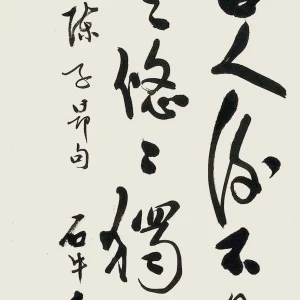 古人後不
之悠〻獨
陳子昂句 石牛